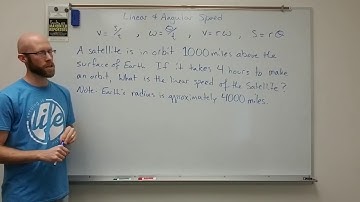 Linear & Angular Speed
v = s/t , ω = θ/t , v = rω , S = rθ
A satellite is in orbit 1000 miles above the
surface of Earth. If it takes 4 hours to make
an orbit, what is the linear speed of the satellite?
Note: Earth's radius is approximately 4000 miles.